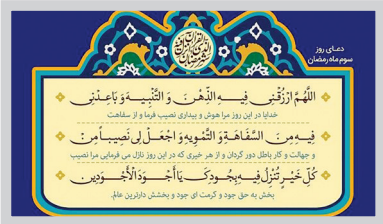 دعـای روز
سوم ماه رمضان
اللَّهُمَّ ارْزُقْنِي فِيـهِ الذِّهْنَ وَ التَّنْبِيـهَ وَ بَاعِدْنِي
خدایا در این روز مرا هوش و بیداری نصیب فرما و از سفاهت
فِيهِ مِنَ السَّفَاهَةِ وَ التَّمْوِيهِ وَ اجْعَلْ لِي نَصِيباً مِنْ
و جهالت و کار باطل دور گردان و از هر خیری که در این روز نازل می فرمایی مرا نصیب
كُلِّ خَيْرٍ تُنْزِلُ فِيهِ بِجُودِكَ يَا أَجْوَدَ الْأَجْوَدِينَ
بخش به حق جود و کرمت ای جود و بخشش دارترین عالم.